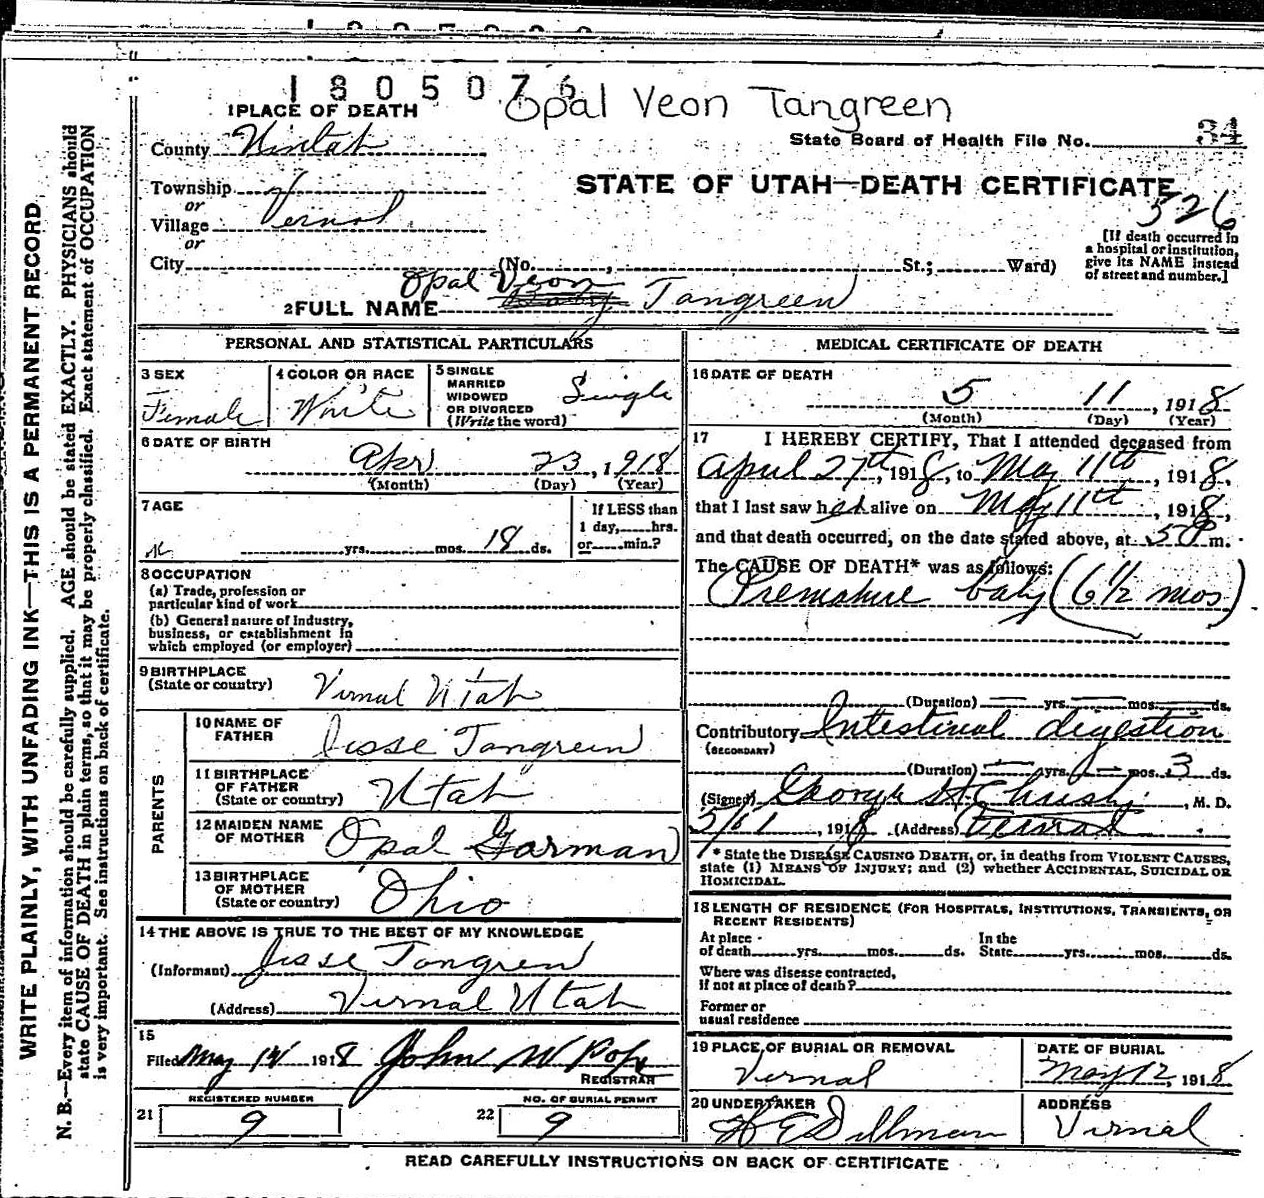 1805076
Opal Veon Tangreen
1 PLACE OF DEATH
State Board of Health File No. 34
County Uintah
STATE OF UTAH—DEATH CERTIFICATE
526
Township
or
Village Vernal
or
City (No. , St.; Ward)
[If death occurred in
a hospital or institution,
give its NAME instead
of street and number.]
Opal Veon
2 FULL NAME Baby Tangreen
PERSONAL AND STATISTICAL PARTICULARS
3 SEX
Female
4 COLOR OR RACE
White
5 SINGLE
MARRIED
WIDOWED
OR DIVORCED
(Write the word)
Single
6 DATE OF BIRTH
Apr 23, 1918
(Month) (Day) (Year)
7 AGE
yrs. mos. 18 ds.
If LESS than
1 day, hrs.
or min.?
8 OCCUPATION
(a) Trade, profession or
particular kind of work
(b) General nature of Industry,
business, or establishment in
which employed (or employer)
9 BIRTHPLACE
(State or country) Vernal Utah
PARENTS
10 NAME OF
FATHER Jesse Tangreen
11 BIRTHPLACE
OF FATHER
(State or country) Utah
12 MAIDEN NAME
OF MOTHER Opal Gorman
13 BIRTHPLACE
OF MOTHER
(State or country) Ohio
14 THE ABOVE IS TRUE TO THE BEST OF MY KNOWLEDGE
(Informant) Jesse Tangren
(Address) Vernal Utah
15
Filed May 14 1918 John W Pope
REGISTRAR
REGISTERED NUMBER
21 9
NO. OF BURIAL PERMIT
22 9
MEDICAL CERTIFICATE OF DEATH
16 DATE OF DEATH
5 11, 1918
(Month) (Day) (Year)
17 I HEREBY CERTIFY, That I attended deceased from
April 27th, 1918, to May 11th, 1918,
that I last saw her alive on May 11th, 1918,
and that death occurred, on the date stated above, at 5 P m.
The CAUSE OF DEATH* was as follows:
Premature baby (6 1/2 mos)
(Duration) yrs. mos. ds.
Contributory Intestinal digestion
(SECONDARY)
(Duration) yrs. mos. 3 ds.
(Signed) George H Christy, M. D.
5/11, 1918 (Address) Vernal
* State the DISEASE CAUSING DEATH, or, in deaths from VIOLENT CAUSES,
state (1) MEANS OF INJURY; and (2) whether ACCIDENTAL, SUICIDAL OR
HOMICIDAL.
18 LENGTH OF RESIDENCE (FOR HOSPITALS, INSTITUTIONS, TRANSIENTS, OR
RECENT RESIDENTS)
At place
of death yrs. mos. ds.
In the
State yrs. mos. ds.
Where was disease contracted,
if not at place of death?
Former or
usual residence
19 PLACE OF BURIAL OR REMOVAL
Vernal
DATE OF BURIAL
May 12, 1918
20 UNDERTAKER
Dillman
ADDRESS
Vernal
READ CAREFULLY INSTRUCTIONS ON BACK OF CERTIFICATE
WRITE PLAINLY, WITH UNFADING INK—THIS IS A PERMANENT RECORD
N. B.—Every item of information should be carefully supplied. AGE should be stated EXACTLY. PHYSICIANS should
state CAUSE OF DEATH in plain terms, so that it may be properly classified. Exact statement of OCCUPATION
is very important. See instructions on back of certificate.